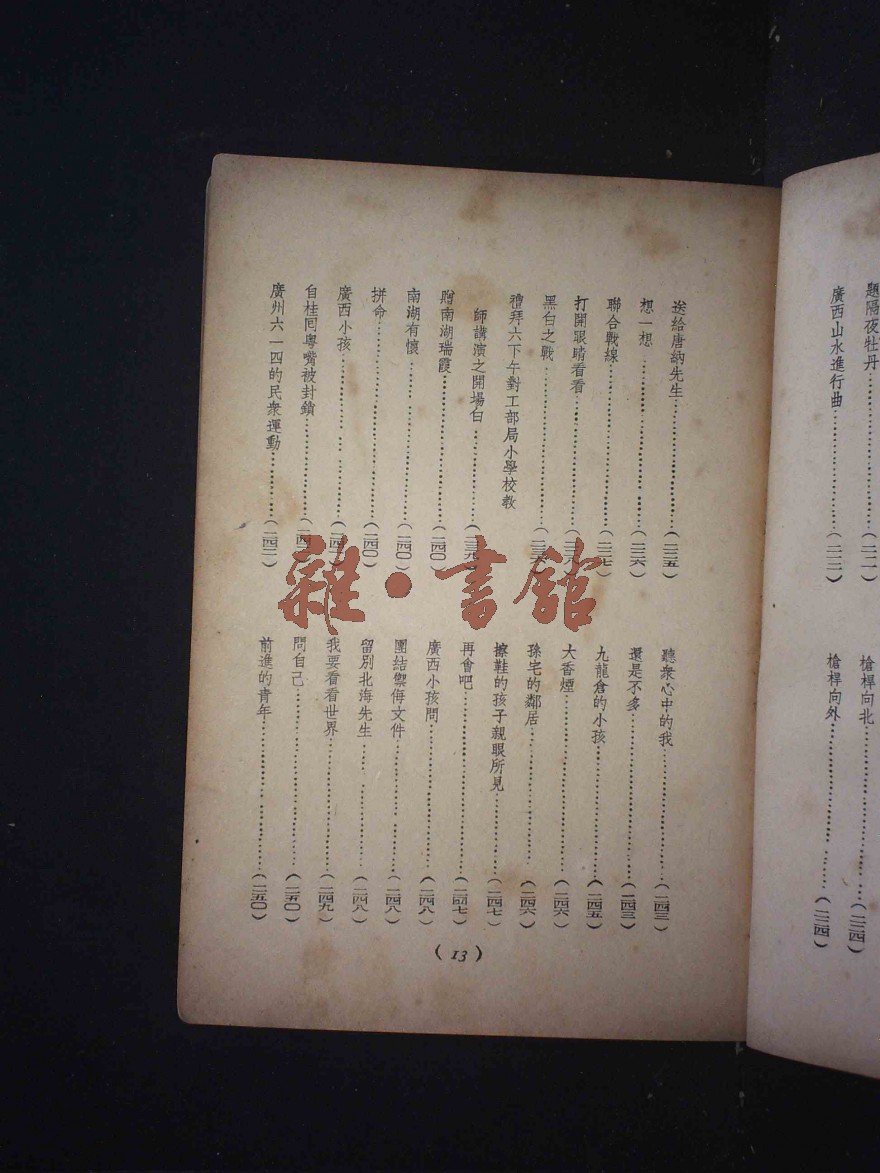 題隔夜牡丹……(二二一)
廣西山水進行曲……(二二三)
槍桿向北……(二二四)
槍桿向外……(二二四)
送給唐納先生……(二三五)
想一想……(二三六)
聯合戰線……(二三七)
打開眼睛看看……(二三八)
黑白之戰……
禮拜六下午對工部局小學校教
師講演之開場白……(二三九)
贈南湖瑞霞……(二四〇)
南湖有懷……(二四〇)
拼命……(二四〇)
廣西小孩……
自桂囘粵嘴被封鎖……
廣州六一四的民衆運動……(二四二)
聽衆心中的我……(二四三)
還是不多……(二四三)
九龍倉的小孩……(二四五)
大香煙……(二四六)
孫宅的鄰居……(二四六)
擦鞋的孩子親眼所見……(二四七)
再會吧……(二四七)
廣西小孩問……(二四八)
團結禦侮文件……(二四八)
留別北海先生……(二四八)
我要看看世界……(二四九)
問自己……(二五〇)
前進的青年……(二五〇)
(13)
雜·書館